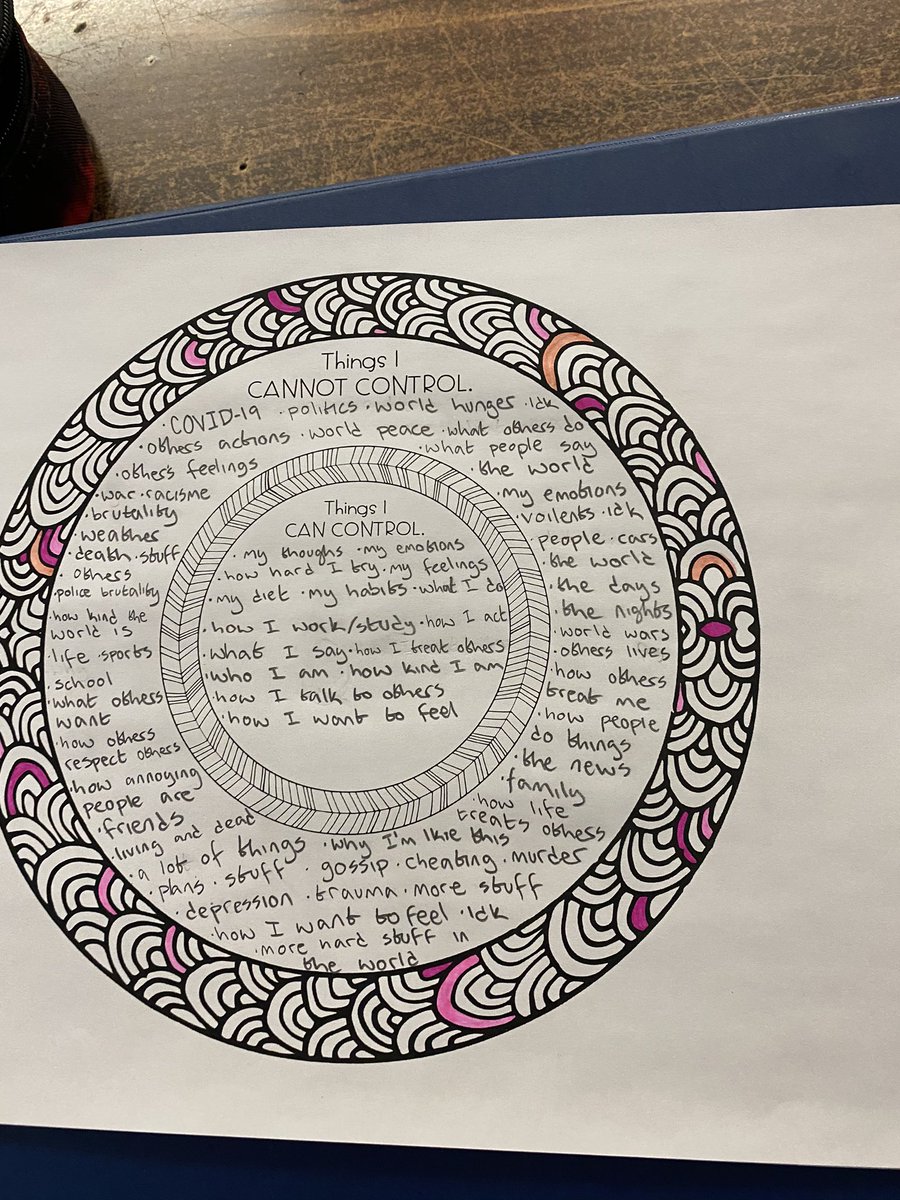 Things I
CANNOT CONTROL.
· COVID-19 · politics · world hunger · idk
· others actions · world peace · what others do
· others feelings
· what people say
· the world
· war · racisme
· brutality
· weather
· death · stuff
· others
· police brutality
· how kind the
world is
· life · sports
· school
· what others
want
· how others
respect others
· how annoying
people are
· friends
· living and dead
· my emotions
· voilents · idk
· people · cars
· the world
· the days
· the nights
· world wars
· others lives
· how others
treat me
· how people
do things
· the news
· family
· how life
treats others
· a lot of things · why I'm lkie this
· plans · stuff · gossip · cheating · murder
· depression · trauma · more stuff
· how I want to feel · idk
· more hard stuff in
the world
Things I
CAN CONTROL.
· my thoughts · my emotions
· how hard I try · my feelings
· my diet · my habits · what I do
· how I work/study · how I act
· what I say · how I treat others
· who I am · how kind I am
· how I talk to others
· how I want to feel